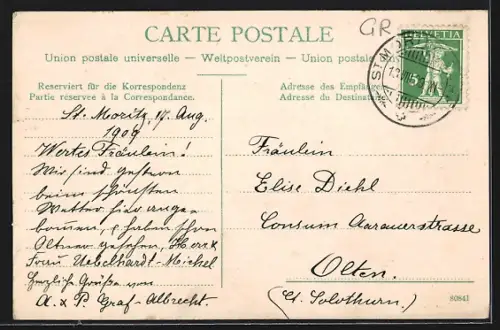 CARTE POSTALE
Union postale universelle – Weltpostverein – Union postale
GR
HELVETIA
5
Reserviert für die Korrespondenz
Partie réservée à la Correspondance.
Adresse des Empfä
Adresse du Destinat
St. Moritz, 17. Aug.
1909
Wertes Fräulein!
Wir sind gestern
beim schönsten
Wetter hier ange-
kommen, & haben schon
Oltner gesehen, Herr &
Frau Uebelhardt-Michel
Herzliche Grüsse von
A. & P. Graf-Albrecht.
Fräulein
Elise Diehl
Consum Aarauerstrasse
Olten.
(Ct. Solothurn.)
80841